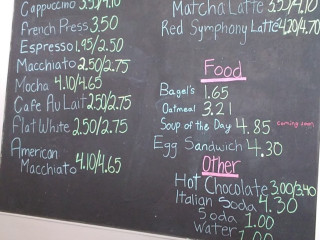 Cappuccino 3.55/4.10
French Press 3.50
Espresso 1.95/2.50
Macchiato 2.50/2.75
Mocha 4.10/4.65
Cafe Au Lait 2.50/2.75
Flat White 2.50/2.75
American
Macchiato 4.10/4.65
Matcha Latte 3.55/4.10
Red Symphony Latte 4.20/4.70
Food
Bagel's 1.65
Oatmeal 3.21
Soup of the Day 4.85 coming soon
Egg Sandwich 4.30
Other
Hot Chocolate 3.00/3.40
Italian Soda 4.30
Soda 1.00
Water 1.00